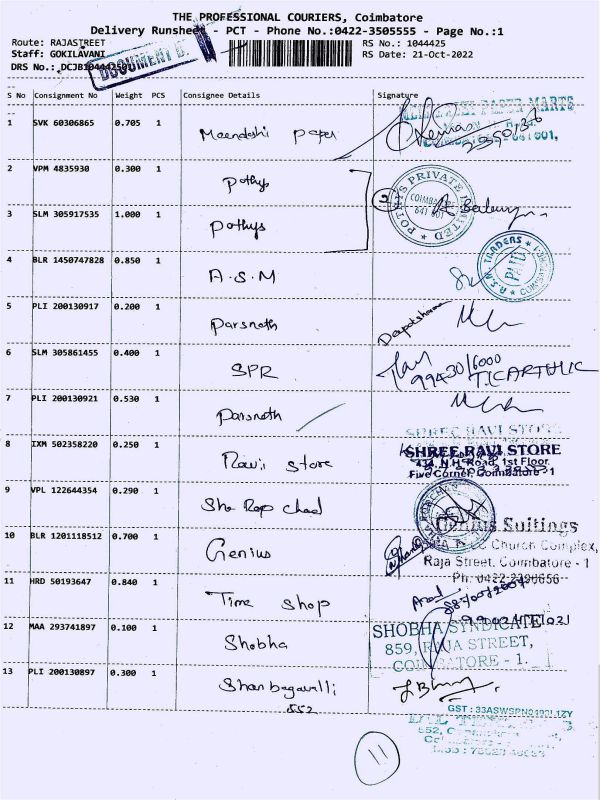 THE PROFESSIONAL COURIERS, Coimbatore
Delivery Runsheet - PCT - Phone No.:0422-3505555 - Page No.:1
Route: RAJASTREET
RS No.: 1044425
Staff: GOKILAVANI
RS Date: 21-Oct-2022
DRS No.:
DOCUMENT
S No Consignment No Weight PCS Consignee Details Signature
1 SVK 60306865 0.705 1 Meenakshi paper
2 VPM 4835930 0.300 1 Pothys
POTHYS PRIVATE LIMITED
COIMBATORE
641 001
3 SLM 305917535 1.000 1 Pothys
4 BLR 1450747828 0.850 1 A.S.M
TRADERS
5 PLI 200130917 0.200 1 Parsnath
6 SLM 305861455 0.400 1 SPR
99430/6000
T.CARTHIC
7 PLI 200130921 0.530 1 Parsnath
SHREE RAVI STORE
8 IXM 502358220 0.250 1 Ravi Store
SHREE RAVI STORE
434, N.H. Road, 1st Floor,
Five Corner, Coimbatore - 1
9 VPL 122644354 0.290 1 Sha Rop Chad
10 BLR 1201118512 0.700 1 Genius
Genius Suitings
Church Complex,
Raja Street, Coimbatore - 1
Ph: 0422-2390656
11 HRD 50193647 0.840 1 Time Shop
12 MAA 293741897 0.100 1 Shobha
SHOBHA SYNDICATE
859, RAJA STREET,
COIMBATORE - 1.
13 PLI 200130897 0.300 1 Shanbagavalli
552
11